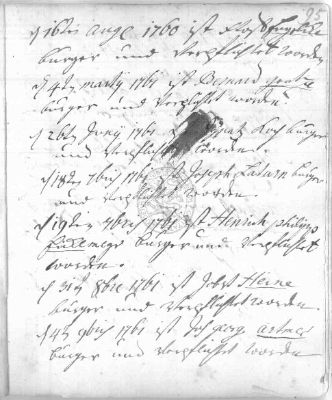 95
d 16ten augs 1760 ist
bürger und verpflichtet worden
d 4ten martij 1761 ist Bernard
bürger und verpflichtet worden
d 26ten Junij 1761 Koch bürger
und verpflichtet worden.
d 18ten 7bris 1761 ist Joseph bürger
und verpflichtet worden.
d 19ten 7bris 1761 ist Henrich philips
bürger und verpflichtet
worden.
d 31ten 8bris 1761 ist Jobst Heine
bürger und verpflichtet worden.
d 4ten 9bris 1761 ist Joh georg
bürger und verpflichtet worden